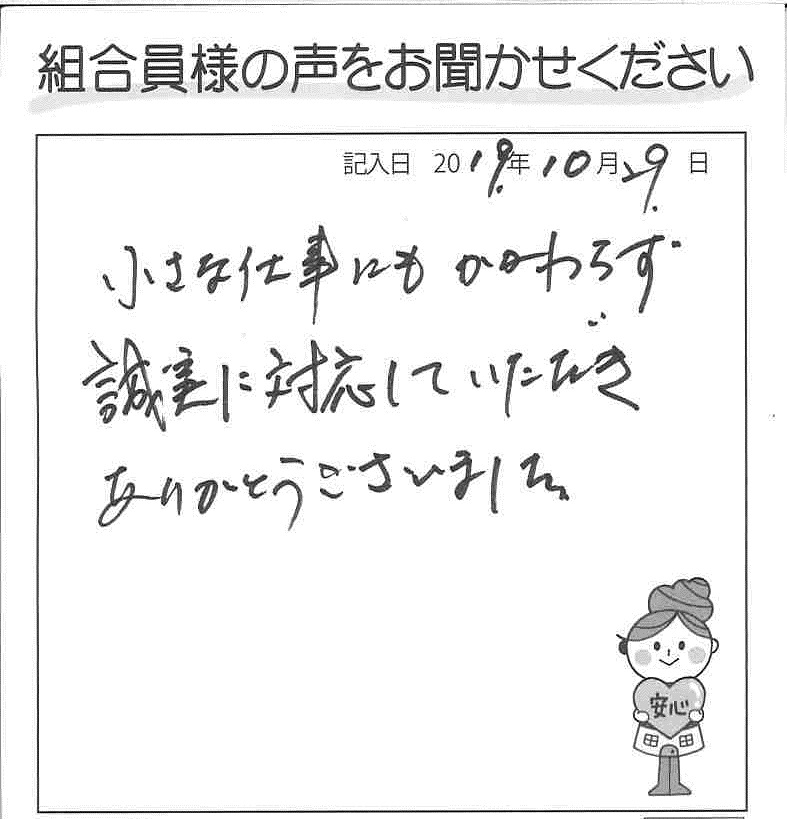 組合員様の声をお聞かせください
記入日 2019年10月29日
小さな仕事にもかかわらず
誠実に対応していただき
ありがとうございました。
安心